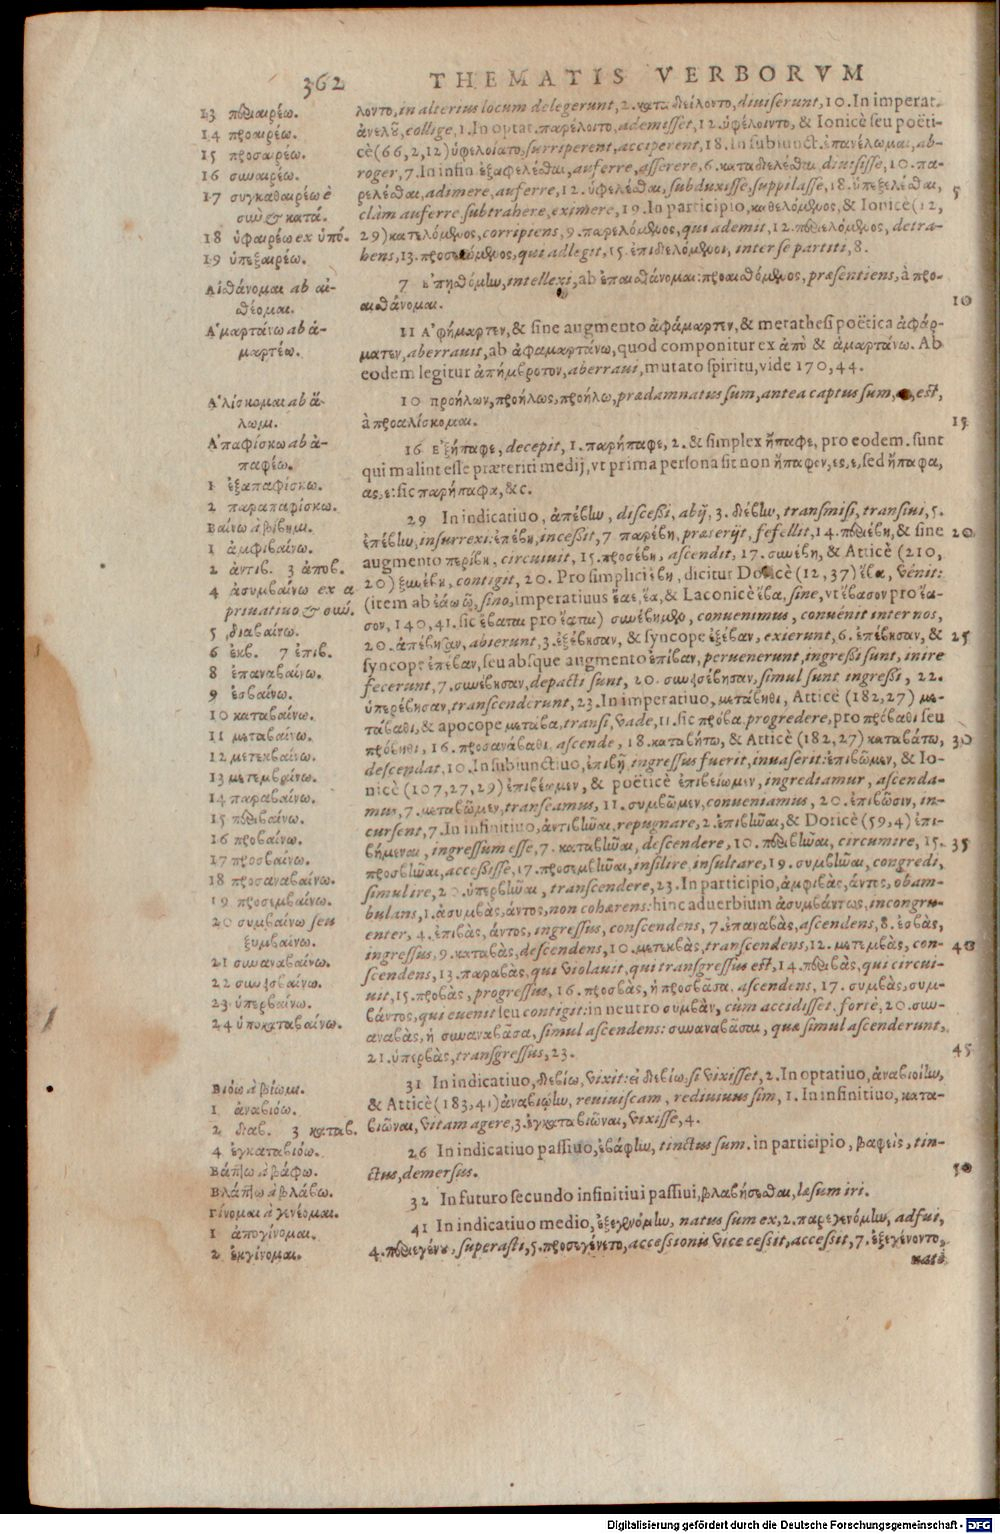 362 THEMATIS VERBORVM
13 περιαιρέω.
14 προαιρέω.
15 προσαιρέω.
16 συναιρέω.
17 συγκαθαιρέω è
σὺν & κατά.
18 ὑφαιρέω ex ὑπό.
19 ὑπεξαιρέω.
Αἰσθάνομαι ab αἰ-
σθέομαι.
Ἁμαρτάνω ab ἁ-
μαρτέω.
Ἁλίσκομαι ab ἅ-
λωμι.
Ἀπαφίσκω ab ἀ-
παφέω.
1 ἐξαπαφίσκω.
2 παραπαφίσκω.
Βαίνω à βίβημι.
1 ἀμφιβαίνω.
2 ἀντιβ. 3 ἀποβ.
4 ἀσυμβαίνω ex α
priuatiuo & σύν.
5 διαβαίνω.
6 ἐκβ. 7 ἐπιβ.
8 ἐπαναβαίνω.
9 ἐσβαίνω.
10 καταβαίνω.
11 μεταβαίνω.
12 μετεκβαίνω.
13 μετεμβαίνω.
14 παραβαίνω.
15 περιβαίνω.
16 προβαίνω.
17 προσβαίνω.
18 προσαναβαίνω.
19 προσεμβαίνω.
20 συμβαίνω seu
ξυμβαίνω.
21 συναναβαίνω.
22 συνεισβαίνω.
23 ὑπερβαίνω.
24 ὑποκαταβαίνω.
Βιόω à βίωμι.
1 ἀναβιόω.
2 διαβ. 3 καταβ.
4 ἐγκαταβιόω.
Βάπτω à βάφω.
Βλάπτω à βλάβω.
Γίνομαι à γενέομαι.
1 ἀπογίνομαι.
2 ἐκγίνομαι.
λοντο, in alterius locum delegerunt, 2. καταδιείλοντο, diuiserunt, 10. In imperat.
ἀνελοῦ, collige, 1. In optat. παρέλοιτο, ademisset, 12. ὑφέλοιντο, & Ionicè seu poëti-
cè (66, 2, 12) ὑφελοίατο, surriperent, acciperent, 18. In subiunct. ἐπανέλωμαι, ab-
roger, 7. In infin. ἐξαφελέσθαι, auferre, asserere, 6. καταδιελέσθαι, diuisisse, 10. πα-
ρελέσθαι, adimere, auferre, 12. ὑφελέσθαι, subduxisse, suppilasse, 18. ὑπεξελέσθαι, 5
clàm auferre, subtrahere, eximere, 19. In participio, καθελόμενος, & Ionicè (12,
29) κατελόμενος, corripiens, 9. παρελόμενος, qui ademit, 12. περιελόμενος, detra-
hens, 13. qui adlegit, 15. ἐπιδιελόμενοι, inter se partiti, 8.
7 Ἐπῃσθόμην, intellexi, ab ἐπαισθάνομαι: προαισθόμενος, præsentiens, à προ-
αισθάνομαι. 10
11 Ἀφήμαρτεν, & sine augmento ἀφάμαρτεν, & metathesi poëtica ἀφάρ-
ματεν, aberrauit, ab ἀφαμαρτάνω, quod componitur ex ἀπὸ & ἁμαρτάνω. Ab
eodem legitur ἀπήμβροτον, aberraui, mutato spiritu, vide 170, 44.
10 προήλων, προήλως, προήλω, prædamnatus sum, antea captus sum, est,
à προαλίσκομαι. 15
16 Ἐξήπαφε, decepit, 1. παρήπαφε, 2. & simplex ἤπαφε, pro eodem. sunt
qui malint esse præteriti medij, vt prima persona sit non ἤπαφον, ες, ε, sed ἤπαφα,
ας, ε: sic παρήπαφα, &c.
29 In indicatiuo, ἀπέβην, discessi, abij, 3. διέβην, transmisi, transiui, 5.
ἐπέβην, insurrexi: ἐπέβη, incessit, 7. παρέβη, præterijt, fefellit, 14. περιέβη, & sine 20
augmento περίβη, circuiuit, 15. προσέβη, ascendit, 17. συνέβη, & Atticè (210,
20) ξυνέβη, contigit, 20. Pro simplici ἔβη, dicitur Doricè (12, 37) ἔβα, vênit:
(item ab ἐάω ῶ, sino, imperatiuus ἔαε, ἔα, & Laconicè ἔβα, sine, vt ἔβασον pro ἔα-
σον, 140, 41. sic ἔβαται pro ἔαται) συνέβημεν, conuenimus, conuênit inter nos,
20. ἀπέβησαν, abierunt, 3. ἐξέβησαν, & syncope ἐξέβαν, exierunt, 6. ἐπέβησαν, & 25
syncope ἐπέβαν, seu absque augmento ἐπίβαν, peruenerunt, ingressi sunt, inire
fecerunt, 7. συνέβησαν, depacti sunt, 20. συνεισέβησαν, simul sunt ingressi, 22.
ὑπερέβησαν, transcenderunt, 23. In imperatiuo, μετάβηθι, Atticè (182, 27) με-
τάβαθι, & apocope μετάβα, transi, vade, 11. sic πρόβα, progredere, pro πρόβαθι seu
πρόβηθι, 16. προσανάβαθι, ascende, 18. καταβήτω, & Atticè (182, 27) καταβάτω, 30
descendat, 10. In subiunctiuo, ἐπιβῇ, ingressus fuerit, inuaserit: ἐπιβῶμεν, & Io-
nicè (107, 27, 29) ἐπιβέωμεν, & poëticè ἐπιβείωμεν, ingrediamur, ascenda-
mus, 7. μεταβῶμεν, transeamus, 11. συμβῶμεν, conueniamus, 20. ἐπιβῶσιν, in-
cursent, 7. In infinitiuo, ἀντιβῆναι, repugnare, 2. ἐπιβῆναι, & Doricè (59, 4) ἐπι-
βήμεναι, ingressum esse, 7. καταβῆναι, descendere, 10. περιβῆναι, circumire, 15. 35
προσβῆναι, accessisse, 17. προσεμβῆναι, insilire, insultare, 19. συμβῆναι, congredi,
simul ire, 20. ὑπερβῆναι, transcendere, 23. In participio, ἀμφιβὰς, άντος, obam-
bulans, 1. ἀσυμβὰς, άντος, non cohærens: hinc aduerbium ἀσυμβάντως, incongru-
enter, 4. ἐπιβὰς, άντος, ingressus, conscendens, 7. ἐπαναβὰς, ascendens, 8. ἐσβὰς,
ingressus, 9. καταβὰς, descendens, 10. μετεκβὰς, transcendens, 12. μετεμβὰς, con- 40
scendens, 13. παραβὰς, qui violauit, qui transgressus est, 14. περιβὰς, qui circui-
uit, 15. προβὰς, progressus, 16. προσβὰς, ἡ προσβᾶσα, ascendens, 17. συμβὰς, συμ-
βάντος, qui euenit seu contigit: in neutro συμβὰν, cùm accidisset fortè, 20. συν-
αναβὰς, ἡ συναναβᾶσα, simul ascendens: συναναβᾶσαι, quæ simul ascenderunt,
21. ὑπερβὰς, transgressus, 23. 45
31 In indicatiuo, διεβίω, vixit: εἰ διεβίω, si vixisset, 2. In optatiuo, ἀναβιοίην,
& Atticè (183, 41) ἀναβιῴην, reuiuiscam, rediuiuus sim, 1. In infinitiuo, κατα-
βιῶναι, vitam agere, 3. ἐγκαταβιῶναι, vixisse, 4.
26 In indicatiuo passiuo, ἐβάφην, tinctus sum. in participio, βαφεὶς, tin-
ctus, demersus. 50
32 In futuro secundo infinitiui passiui, βλαβήσεσθαι, læsum iri.
41 In indicatiuo medio, ἐξεγενόμην, natus sum ex, 2. παρεγενόμην, adfui,
4. περιεγένου, superasti, 5. προσεγένετο, accessionis vice cessit, accessit, 7. ἐξεγένοντο,
nati
Digitalisierung gefördert durch die Deutsche Forschungsgemeinschaft - DFG